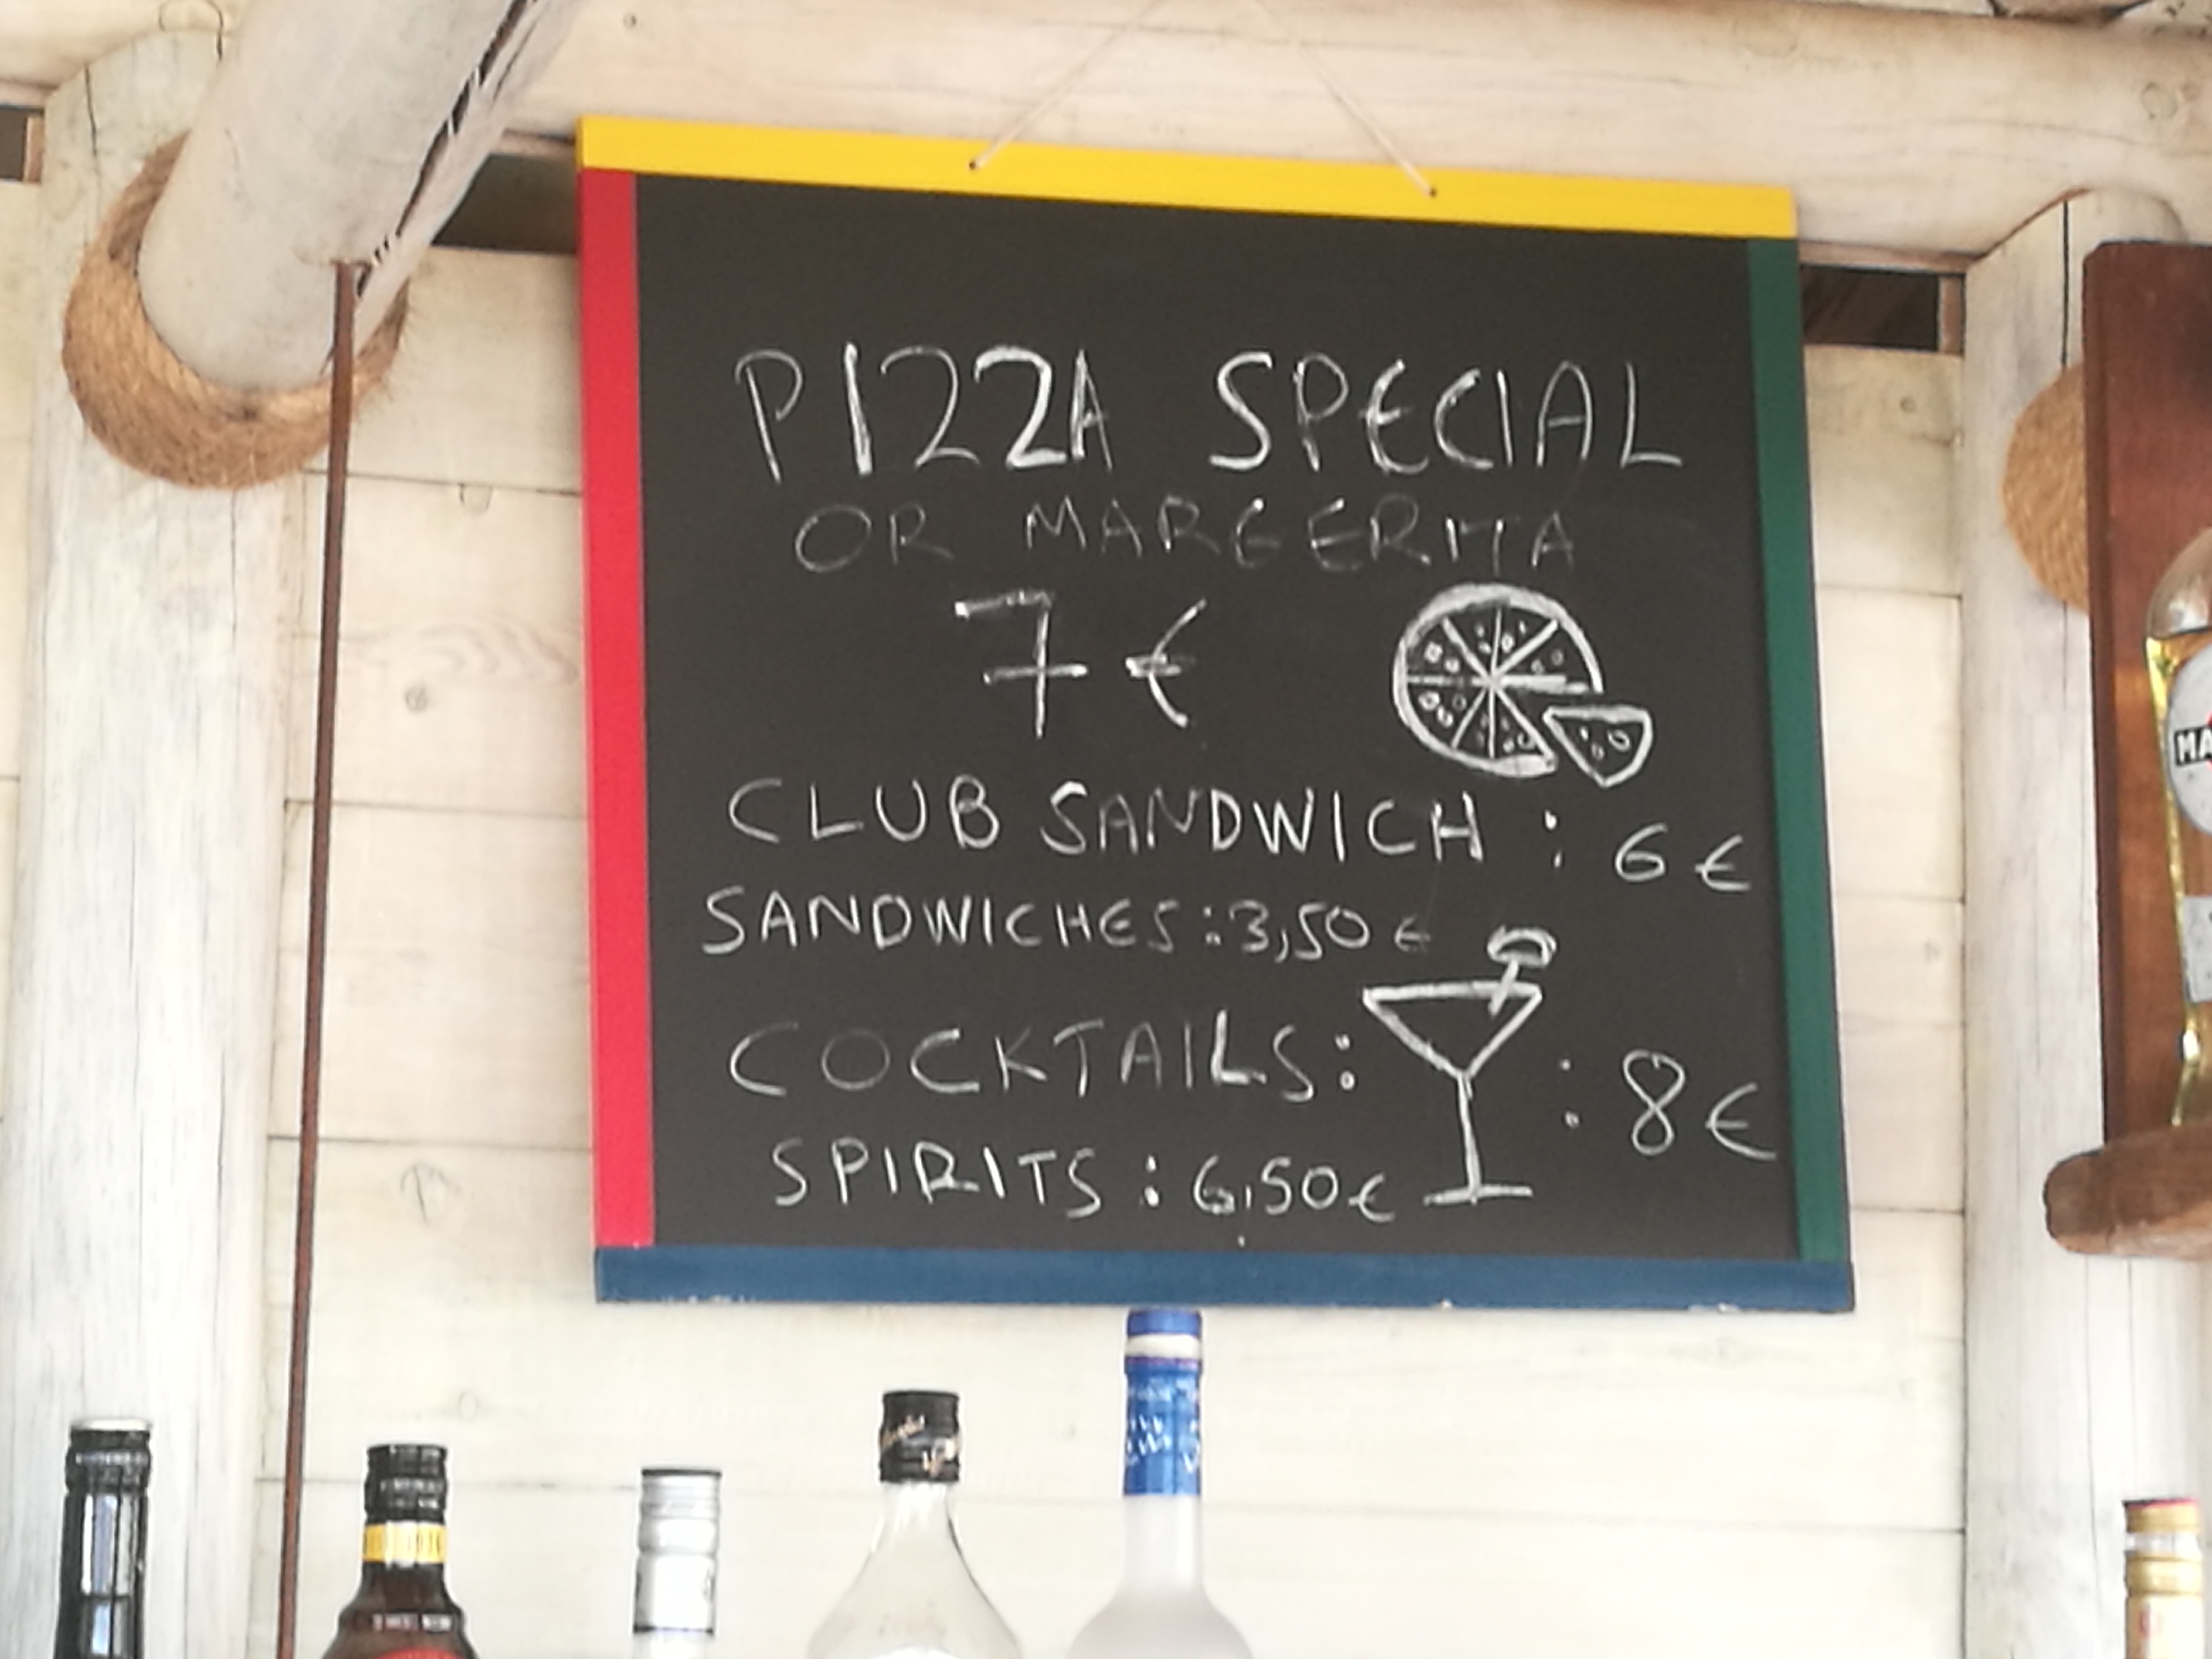 PIZZA SPECIAL
OR MARGERITA
7 €
CLUB SANDWICH : 6 €
SANDWICHES : 3,50 €
COCKTAILS : : 8 €
SPIRITS : 6,50 €